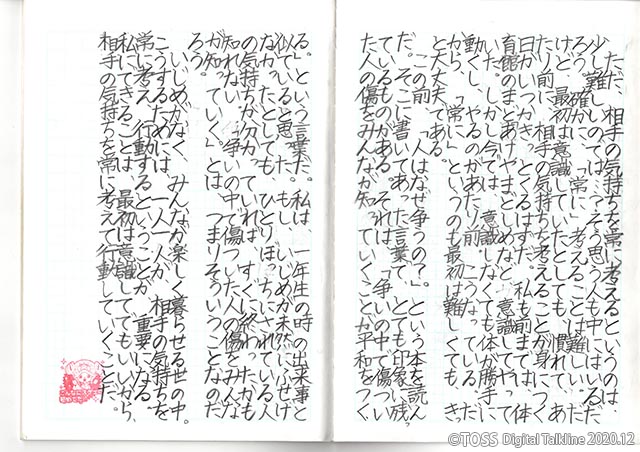 ただ、相手の気持ちを常に考えるというのは、
少し難しいのでは…?そう思う人も中にはいるだ
ろう。確かに、「常に」考えることは難しい。
けど、最初は意識していたとしても、慣れて、あ
たり前に、相手の気持ちを考えることが身につく
日がいつかきっとくるはずだ。私も前までは、体
育館のまどあけやまどしめなど、意識してやって
いた。しかし今では、意識しなくても体が勝手に
動くし、やるのがあたり前に、こうなっていくの
だから、「常に」というのも最初は難しくても、きっ
と大丈夫である。
この前、「人はなぜ争うの?」という本を読ん
だ。そこに書いてあった言葉で、とても印象に残っ
ているものがある。それは、「争いの中で傷つい
た人の傷をみんなが知っていくことが平和をつく
る。」という言葉だ。私は、一年生の時の出来事と
似ていると思った。もし、いじめが未然にふせげ
なかったとしても、ひとりぼっちにされている人
の気持ちが分かっていれば、すぐに終わったかも
知れない。「争いの中で傷ついた人の傷をみんな
が知っていく」とは、つまりそういうことなのだ
ろう。
いじめがなく、みんなが楽しく暮らせる世の中。
こうするためには、一人一人が、相手の気持ちを
常に考え、行動するということが、重要になる。
私にできることは、最初は意識してでもいいから、
相手の気持ちを常に考えて行動していくことだ。
©TOSS Digital Talkline 2020.12